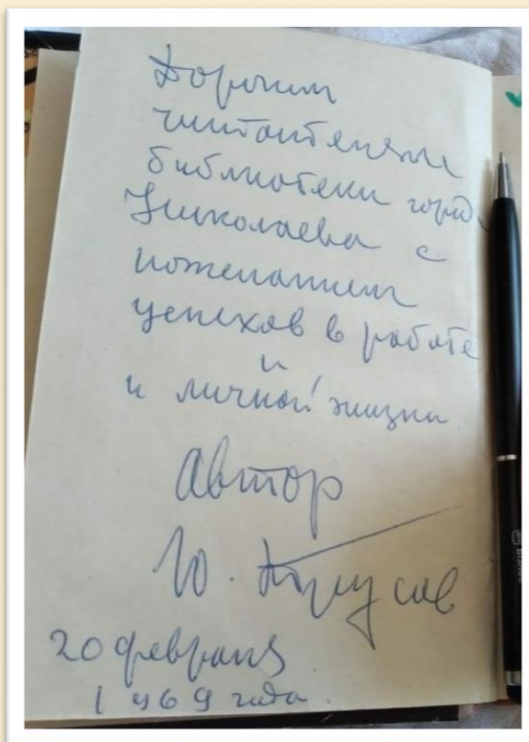 Дорогим
читателям
библиотеки города
Николаева с
пожеланием
успехов в работе
и
и личной жизни
Автор
Ю.
20 февраля
1969 года.